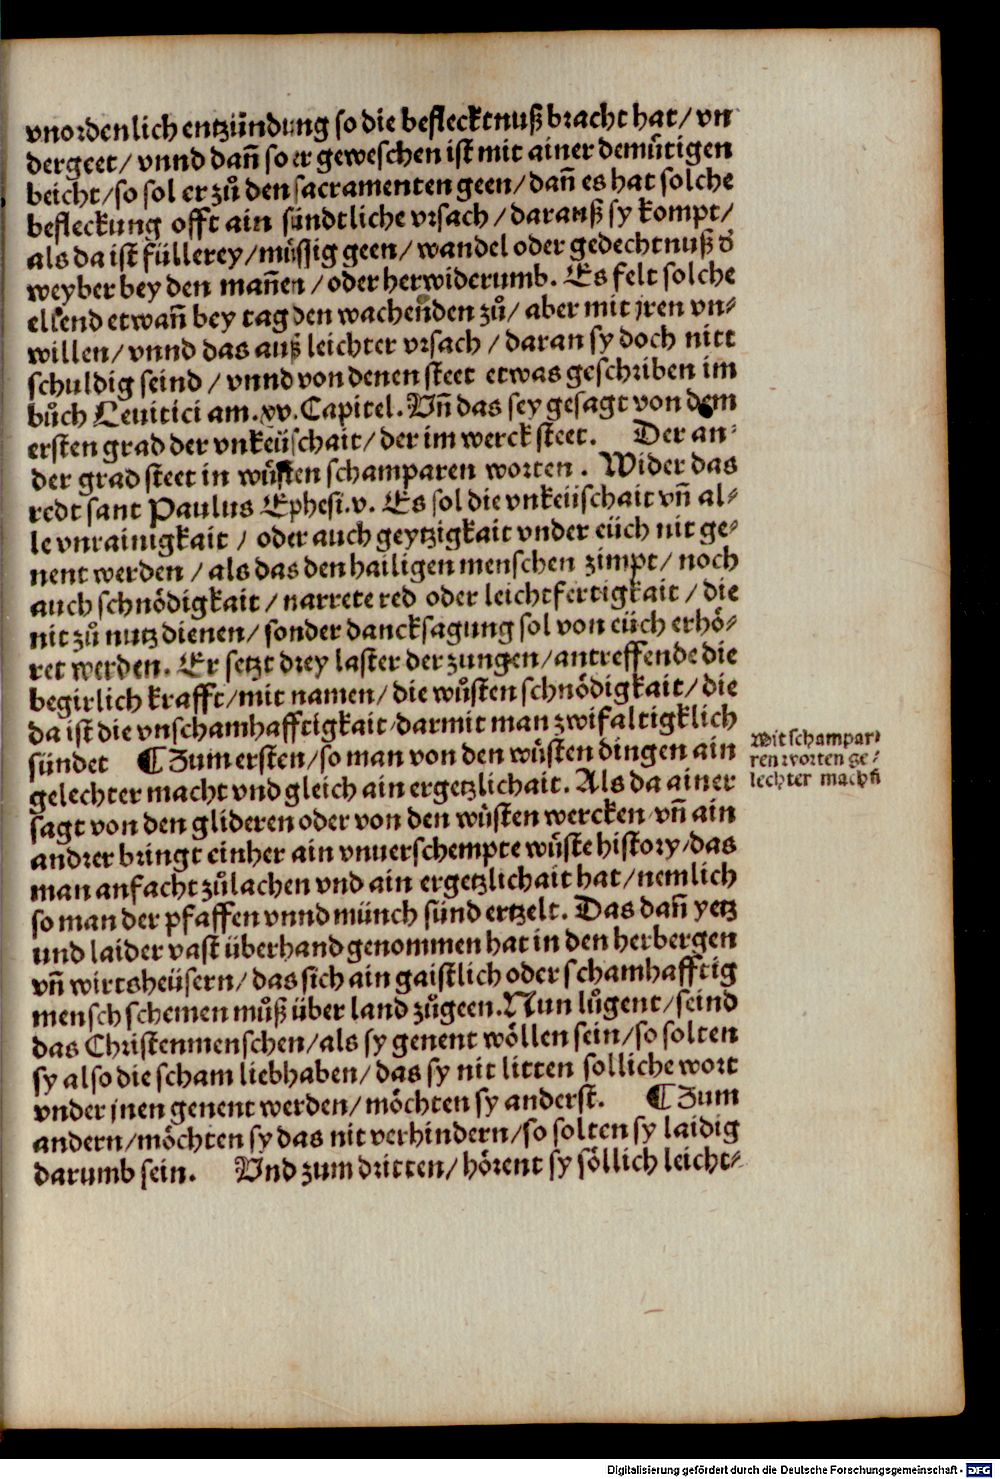 vnordenlich entzündung so die beflecktnuß bracht hat/ vn
dergeet/ vnnd dañ so er geweschen ist mit ainer demuͤtigen
beicht/ so sol er zuͦ den sacramenten geen/ dañ es hat solche
befleckung offt ain sündtliche vrsach/ darauß sy kompt/
als da ist füllerey/ muͤssig geen/ wandel oder gedechtnuß d̕
weyber bey den mañen/ oder herwiderumb. Es felt solche
ellend etwañ bey tag den wachenden zuͦ/ aber mit jren vn⸗
willen/ vnnd das auß leichter vrsach/ daran sy doch nitt
schuldig seind/ vnnd von denen steet etwas geschriben im
buͦch Leuitici am .xv. Capitel. Vñ das sey gesagt von dem
ersten grad der vnkeüschait/ der im werck steet. Der an⸗
der grad steet in wuͤsten schamparen worten. Wider das
redt sant Paulus Ephesi.v. Es sol die vnkeüschait vñ al⸗
le vnrainigkait/ oder auch geytzigkait vnder eüch nit ge⸗
nent werden/ als das den hailigen menschen zimpt/ noch
auch schnoͤdigkait/ narrete red oder leichtfertigkait/ die
nit zuͦ nutz dienen/ sonder dancksagung sol von eüch erhoͤ⸗
ret werden. Er setzt drey laster der zungen/ antreffende die
begirlich krafft/ mit namen/ die wuͤsten schnoͤdigkait/ die
da ist die vnschamhafftigkait/ darmit man zwifaltigklich
sündet ¶ Zum ersten/ so man von den wuͤsten dingen ain
gelechter macht vnd gleich ain ergetzlichait. Als da ainer
sagt von den glideren oder von den wuͤsten wercken/ vñ ain
andrer bringt einher ain vnuerschempte wuͤste history/ das
man anfacht zuͦlachen vnd ain ergetzlichait hat/ nemlich
so man der pfaffen vnnd münch sünd ertzelt. Das dañ yetz
und laider vast überhand genommen hat in den herbergen
vñ wirtsheüsern/ das sich ain gaistlich oder schamhafftig
mensch schemen muͦß über land zuͦgeen. Nun luͦgent/ seind
das Christenmenschen/ als sy genent woͤllen sein/ so solten
sy also die scham liebhaben/ das sy nit litten solliche wort
vnder jnen genent werden/ moͤchten sy anderst. ¶ Zum
andern/ moͤchten sy das nit verhindern/ so solten sy laidig
darumb sein. Vnd zum dritten/ hoͤrent sy soͤllich leicht⸗
Mit schampar⸗
ren worten ge⸗
lechter machñ
Digitalisierung gefördert durch die Deutsche Forschungsgemeinschaft - DFG